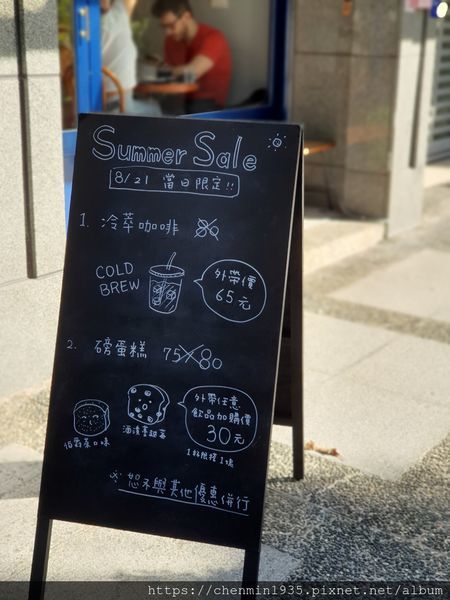 Summer Sale
8/21 當日限定!!
1. 冷萃咖啡 80
COLD
BREW
外帶價
65元
2. 磅蛋糕 75 80
外帶任意
飲品加購價
30元
伯爵茶口味
1杯限擇1塊
※ 恕不與其他優惠併行
https://chenmin1935.pixnet.net/album